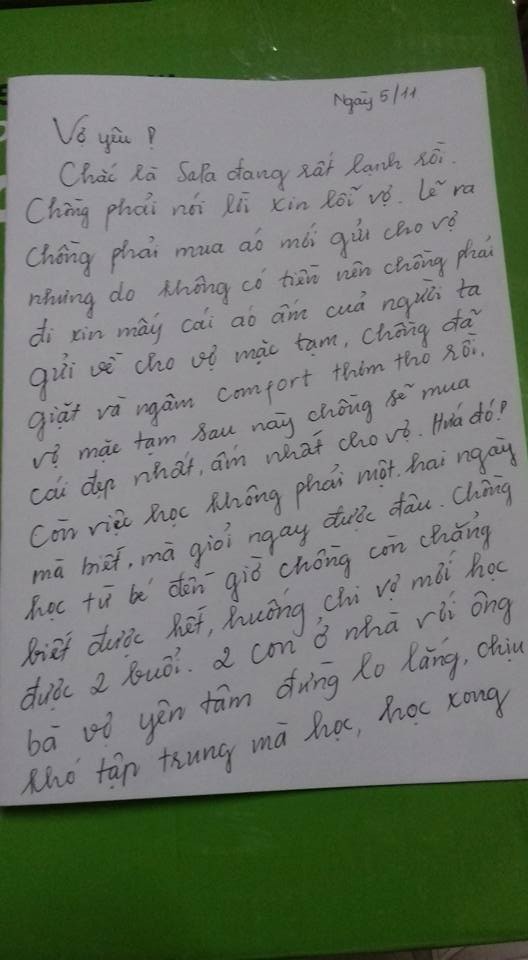 Ngày 5/11
Vợ yêu !
Chắc là SaPa đang rất lạnh rồi.
Chồng phải nói lời xin lỗi vợ. Lẽ ra
chồng phải mua áo mới gửi cho vợ
nhưng do không có tiền nên chồng phải
đi xin mấy cái áo ấm cuả người ta
gửi về cho vợ mặc tạm, chồng đã
giặt và ngâm comfort thơm tho rồi.
vợ mặc tạm sau này chồng sẽ mua
cái đẹp nhất, ấm nhất cho vợ. Hứa đó!
Còn việc học không phải một, hai ngày
mà biết, mà giỏi ngay được đâu. Chồng
học từ bé đến giờ chồng còn chẳng
biết được hết, huống chi vợ mới học
được 2 buổi. 2 con ở nhà với ông
bà vợ yên tâm đừng lo lắng, chịu
khó tập trung mà học, học xong